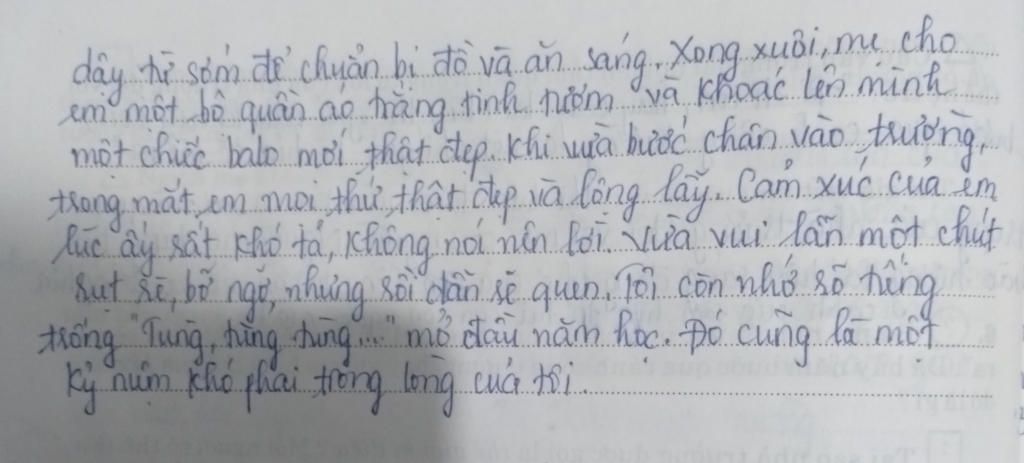 dậy từ sớm để chuẩn bị đồ và ăn sáng. Xong xuôi, mẹ cho
em một bộ quần áo trắng tinh tươm và khoác lên mình
một chiếc balo mới thật đẹp. Khi vừa bước chân vào trường,
trong mắt em mọi thứ thật đẹp và lông lẫy. Cảm xúc của em
lúc ấy rất khó tả, không nói nên lời. Vừa vui lẫn một chút
rụt rè, bỡ ngỡ, nhưng rồi dần sẽ quen. Tôi còn nhớ rõ tiếng
trống "Tùng, tùng tùng..." mở đầu năm học. Đó cũng là một
kỷ niệm khó phai trong lòng của tôi.